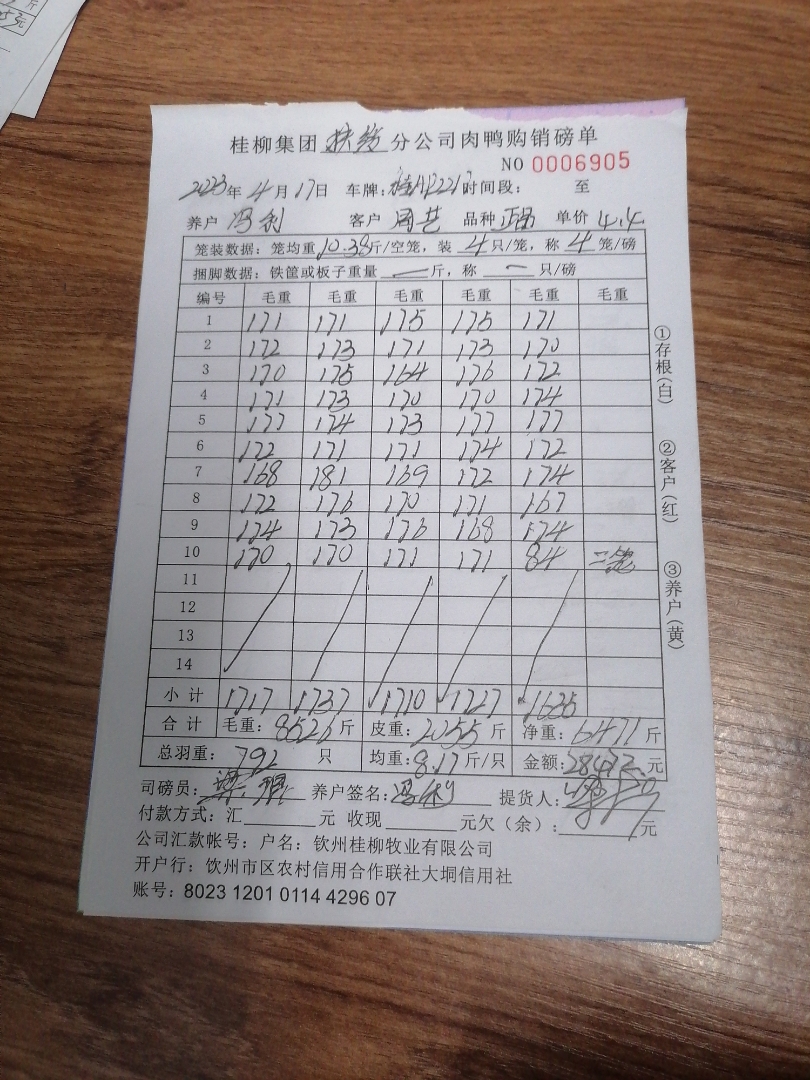 桂柳集团 扶绥 分公司肉鸭购销磅单
NO 0006905
2023年4月17日 车牌: 时间段: 至
养户 冯利 客户 周艺 品种 单价 4.4
笼装数据：笼均重10.38斤/空笼，装 4 只/笼，称 4 笼/磅
捆脚数据：铁筐或板子重量 — 斤，称 — 只/磅
编号 毛重 毛重 毛重 毛重 毛重 毛重
1 171 171 175 175 171
2 172 173 171 173 170
3 170 175 164 176 172
4 171 173 170 170 174
5 177 174 173 177 177
6 172 171 171 174 172
7 168 181 169 172 174
8 172 176 170 171 167
9 174 173 176 168 174
10 170 170 171 171 84 二笼
11
12
13
14
小计 1717 1737 1710 1727 1635
合计 毛重：8526斤 皮重：2055斤 净重：6471斤
总羽重：792 只 均重：8.17斤/只 金额：28472.元
司磅员： 养户签名：冯利 提货人：
付款方式：汇 元 收现 元欠（余）： 元
公司汇款帐号：户名：钦州桂柳牧业有限公司
开户行：钦州市区农村信用合作联社大垌信用社
账号：8023 1201 0114 4296 07
①存根(白)
②客户(红)
③养户(黄)